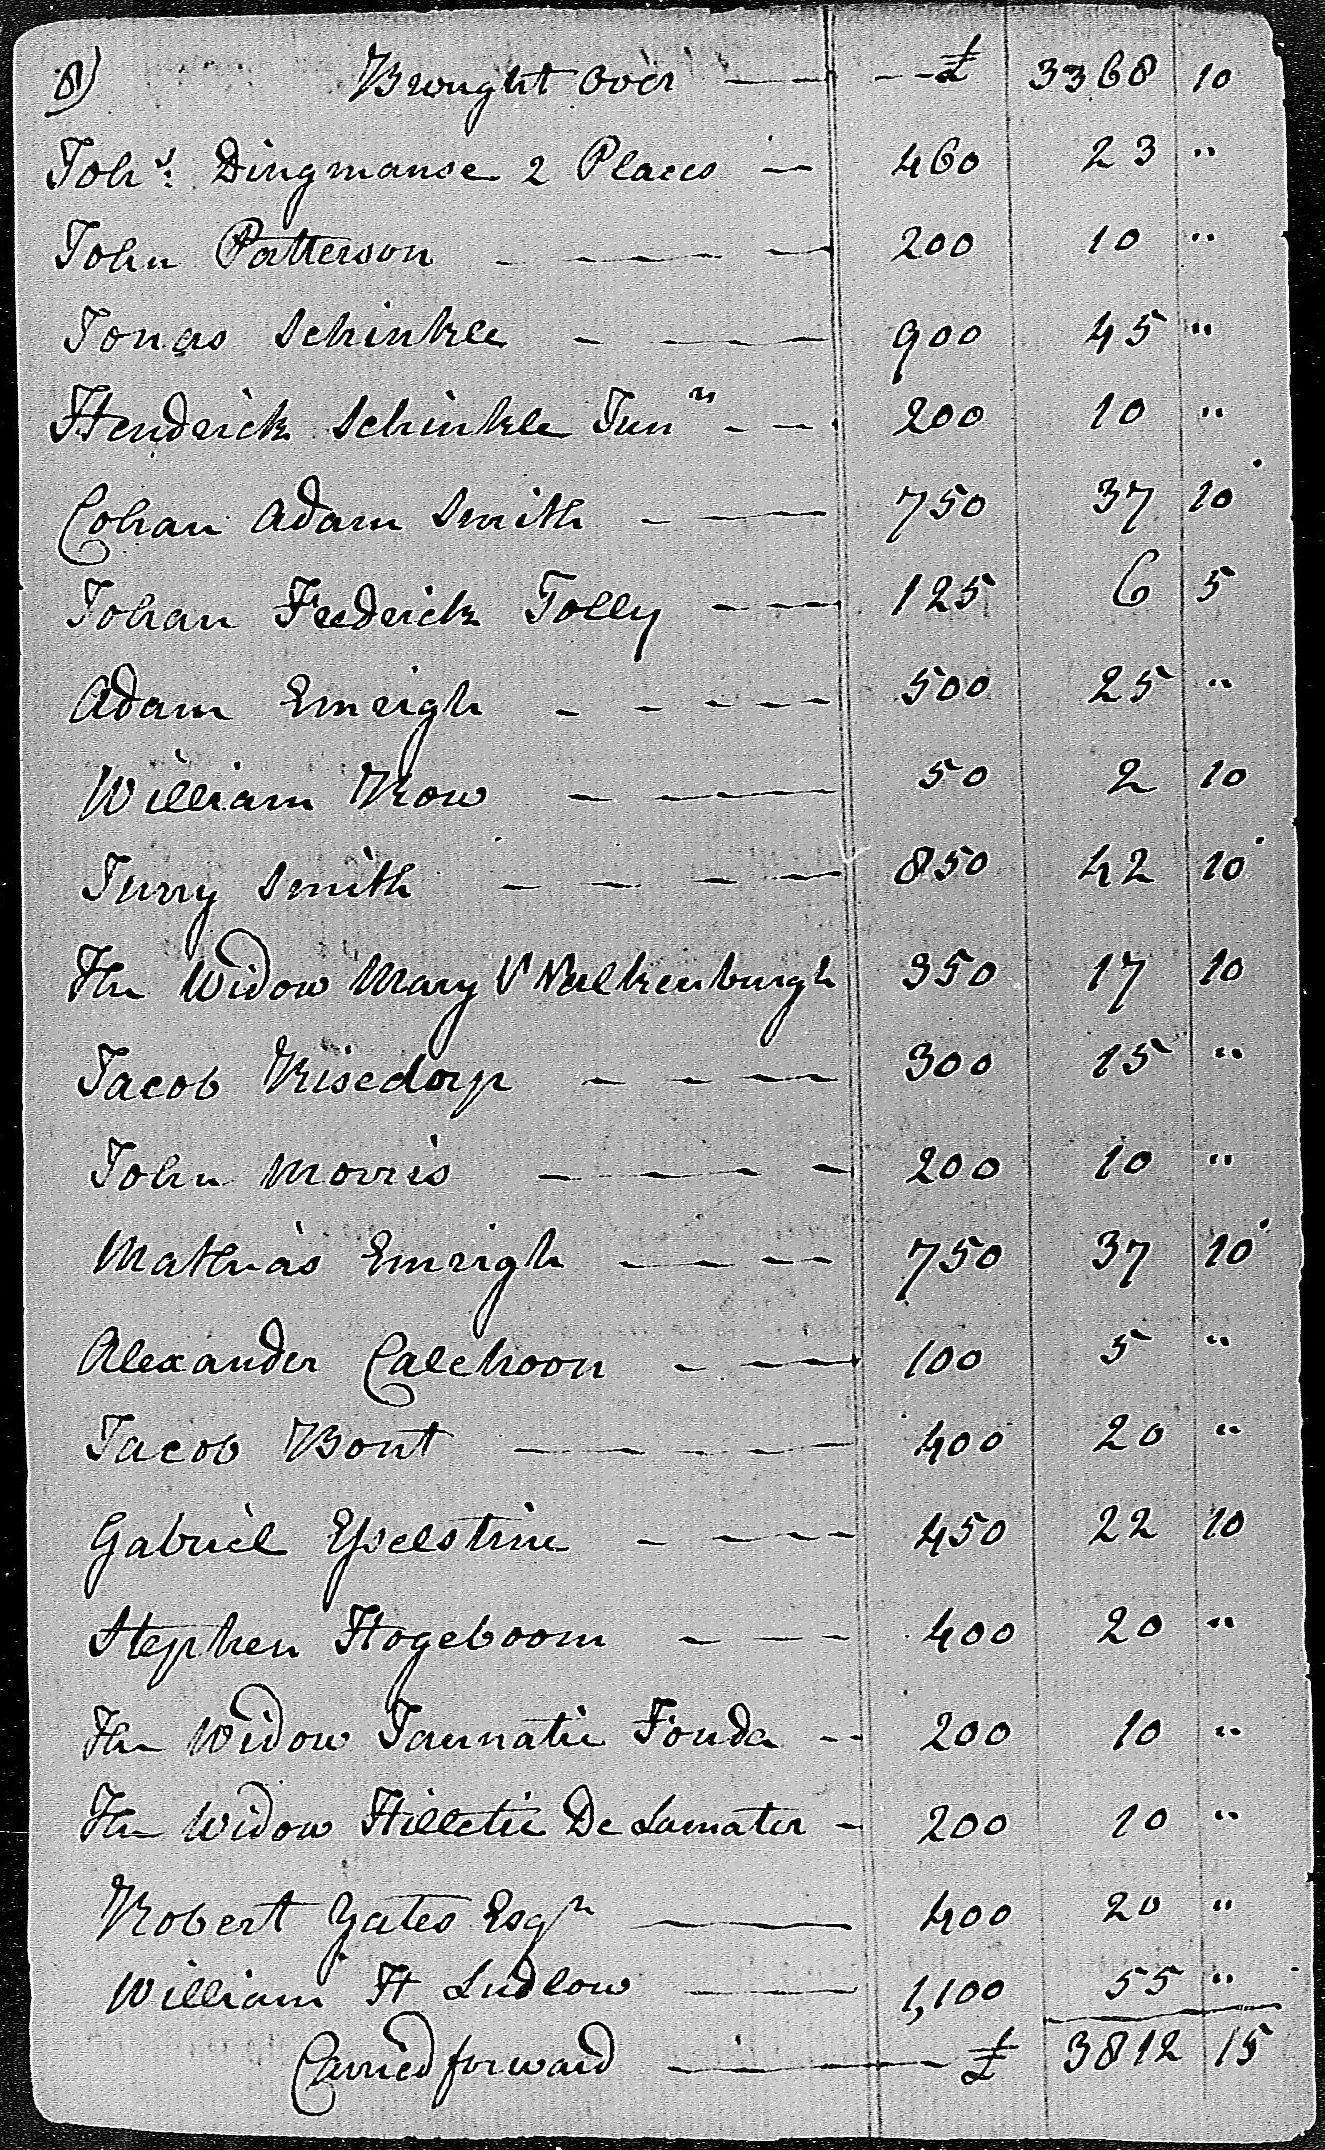 8) Brought Over — £ 3368 10
Joh.s Dingmanse 2 Places — 460 23 "
John Patterson — 200 10 "
Jonas Schinkle — 900 45 "
Hendrick Schinkle Junr — 200 10 "
Cohan Adam Smith — 750 37 10
Johan Fredrick Jolly — 125 6 5
Adam Emeigh — 500 25 "
William Row — 50 2 10
Jurry Smith — 850 42 10
The Widow Mary V Valkenburgh 350 17 10
Jacob Risedorp — 300 15 "
John Morris — 200 10 "
Mathias Emeigh — 750 37 10
Alexander Calchoon — 100 5 "
Jacob Bont — 400 20 "
Gabriel Esselstine — 450 22 10
Stephen Hogeboom — 400 20 "
The Widow Jannatie Fonda — 200 10 "
The Widow Hilletie De Lamater — 200 10 "
Robert Yates Esqr — 400 20 "
William H Ludlow — 1,100 55 "
Carried forward — £ 3812 15